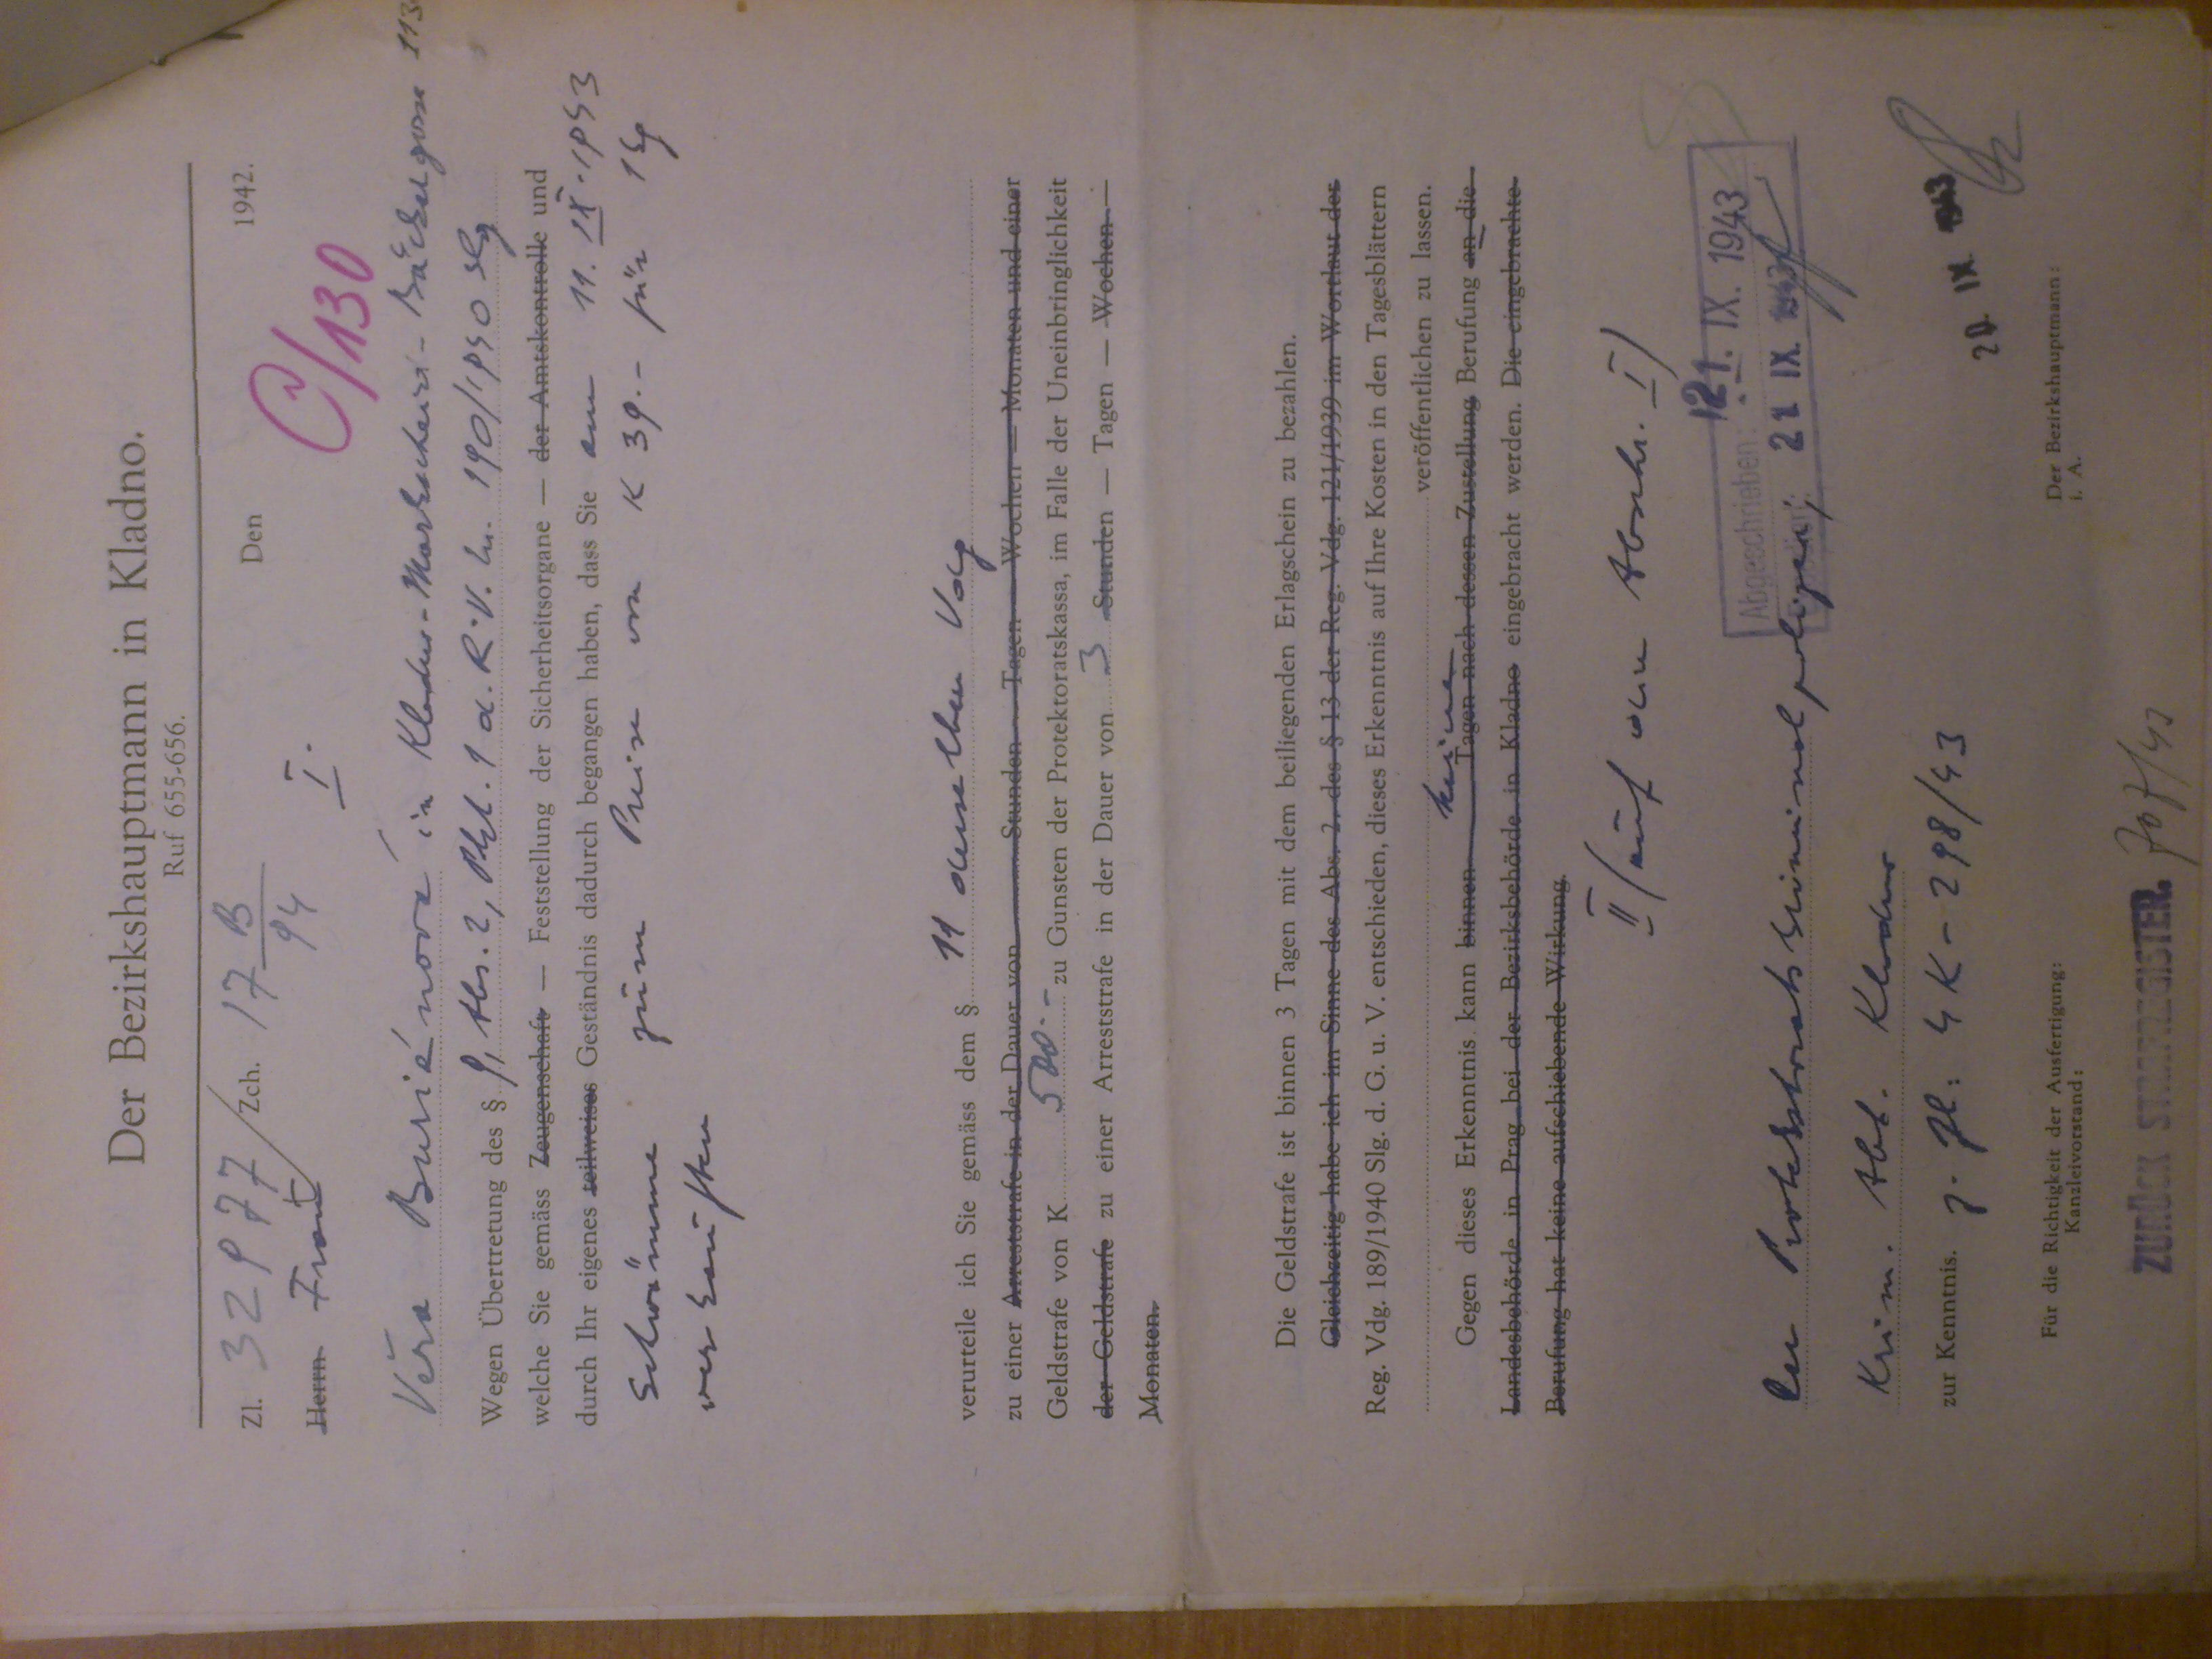 Der Bezirkshauptmann in Kladno.
Ruf 655-656.
Zl. 32977/Zch. 17 B/94 Den 1942.
Herrn Frau I. C/130
Věra Buriánová in Kladno - Bäckergasse 113
Wegen Übertretung des § 9, Abs. 2, Pkt. 1 d. R. V. Nr. 190/1940 Slg
welche Sie gemäss Zeugenschaft — Feststellung der Sicherheitsorgane — der Amtskontrolle und
durch Ihr eigenes teilweises Geständnis dadurch begangen haben, dass Sie am 11. IX. 1943
Schwämme zum Preise von K 39.- für 1 kg
verkauften
verurteile ich Sie gemäss dem § 11 derselben Vdg
zu einer Arreststrafe in der Dauer von Stunden — Tagen — Wochen — Monaten und einer
Geldstrafe von K 500.- zu Gunsten der Protektoratskassa, im Falle der Uneinbringlichkeit
der Geldstrafe zu einer Arreststrafe in der Dauer von 3 Stunden — Tagen — Wochen —
Monaten.
Die Geldstrafe ist binnen 3 Tagen mit dem beiliegenden Erlagschein zu bezahlen.
Gleichzeitig habe ich im Sinne des Abs. 2. des § 13 der Reg. Vdg. 121/1939 im Wortlaut der
Reg. Vdg. 189/1940 Slg. d. G. u. V. entschieden, dieses Erkenntnis auf Ihre Kosten in den Tagesblättern
veröffentlichen zu lassen.
keine
Gegen dieses Erkenntnis kann binnen Tagen nach dessen Zustellung Berufung an die
Landesbehörde in Prag bei der Bezirksbehörde in Kladno eingebracht werden. Die eingebrachte
Berufung hat keine aufschiebende Wirkung.
II (auf den Abschr. I)
Abgeschrieben: 21. IX. 1943
Der Protektoratskriminalpolizei, 21 IX. 1943
Krim. Abt. Kladno
zur Kenntnis. z. Zl: 4 K - 298/43
20. IX. 1943
Für die Richtigkeit der Ausfertigung:
Kanzleivorstand:
Der Bezirkshauptmann:
i. A.
ZURÜCK STRAFREGISTER. 707/43